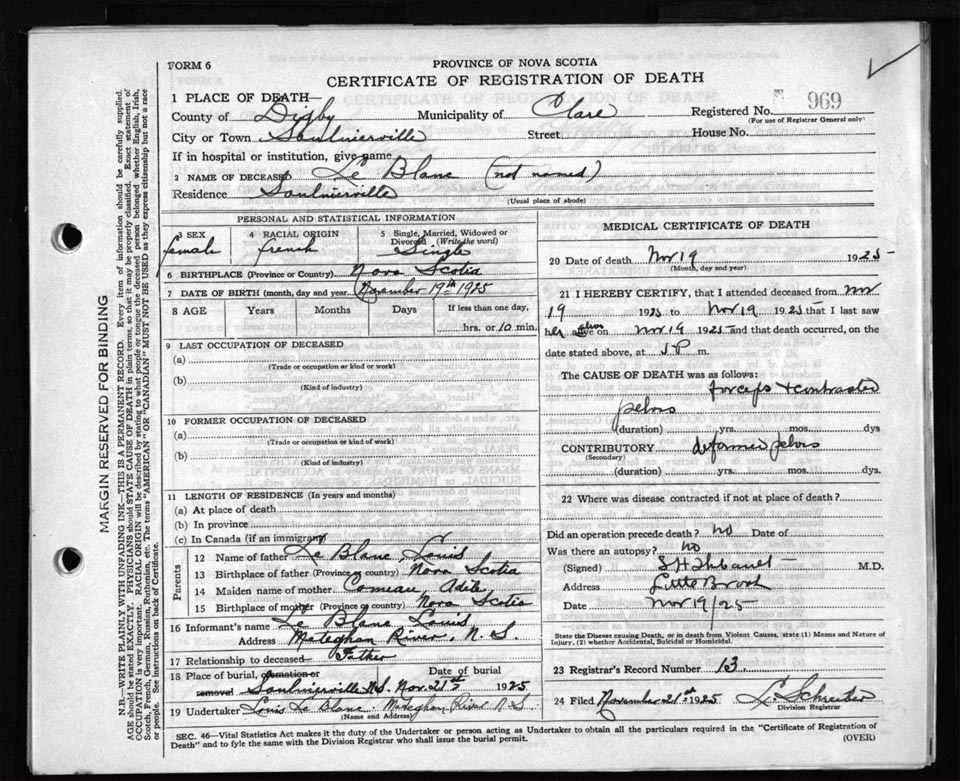 FORM 6
PROVINCE OF NOVA SCOTIA
CERTIFICATE OF REGISTRATION OF DEATH
1 PLACE OF DEATH—
County of Digby Municipality of Clare Registered No. 969
(For use of Registrar General only)
City or Town Saulnierville Street House No.
If in hospital or institution, give name
2 NAME OF DECEASED Le Blanc (not named)
Residence Saulnierville
(Usual place of abode)
PERSONAL AND STATISTICAL INFORMATION
3 SEX 4 RACIAL ORIGIN 5 Single, Married, Widowed or Divorced (Write the word)
female french Single
6 BIRTHPLACE (Province or Country) Nova Scotia
7 DATE OF BIRTH (month, day and year) November 19th 1925
8 AGE Years Months Days If less than one day,
hrs. or 10 min.
9 LAST OCCUPATION OF DECEASED
(a)
(Trade or occupation or kind or work)
(b)
(Kind of industry)
10 FORMER OCCUPATION OF DECEASED
(a)
(Trade or occupation or kind of work)
(b)
(Kind of industry)
11 LENGTH OF RESIDENCE (In years and months)
(a) At place of death
(b) In province
(c) In Canada (if an immigrant)
Parents
12 Name of father Le Blanc Louis
13 Birthplace of father (Province or country) Nova Scotia
14 Maiden name of mother Comeau Adele
15 Birthplace of mother (Province or country) Nova Scotia
16 Informant's name Le Blanc Louis
Address Meteghan River, N. S.
17 Relationship to deceased Father
18 Place of burial, cremation or removal Saulnierville N.S. Date of burial Nov. 21st 1925
19 Undertaker Louis Le Blanc. Meteghan River N.S.
(Name and Address)
MEDICAL CERTIFICATE OF DEATH
20 Date of death Nov 19 1925
(Month, day and year)
21 I HEREBY CERTIFY, that I attended deceased from Nov
19 1925 to Nov 19 1925 that I last saw
her alive on Nov 19 1925 and that death occurred, on the
date stated above, at P m.
The CAUSE OF DEATH was as follows:
forceps + contracted
pelvis
(duration) yrs. mos. dys
CONTRIBUTORY deformed pelvis
(Secondary)
(duration) yrs. mos. dys.
22 Where was disease contracted if not at place of death?
Did an operation precede death? no Date of
Was there an autopsy? no
(Signed) M.D.
Address Little Brook
Date Nov 19/25
State the Disease causing Death, or in death from Violent Causes, state (1) Means and Nature of
Injury, (2) whether Accidental, Suicidal or Homicidal.
23 Registrar's Record Number 13.
24 Filed November 21st 1925
Division Registrar
SEC. 46—Vital Statistics Act makes it the duty of the Undertaker or person acting as Undertaker to obtain all the particulars required in the "Certificate of Registration of
Death" and to fyle the same with the Division Registrar who shall issue the burial permit. (OVER)
MARGIN RESERVED FOR BINDING
N.B.—WRITE PLAINLY WITH UNFADING INK—THIS IS A PERMANENT RECORD. Every item of information should be carefully supplied.
AGE should be stated EXACTLY. PHYSICIANS should STATE CAUSE OF DEATH in plain terms, so that it may be properly classified. Exact statement of
OCCUPATION is very important. RACIAL ORIGIN will be described by stating to what people or tongue the deceased person belonged whether English, Irish,
Scotch, French, German, Russian, Ruthenian, etc. The terms "AMERICAN" OR "CANADIAN" MUST NOT BE USED as they express citizenship but not a race
or people. See instructions on back of Certificate.